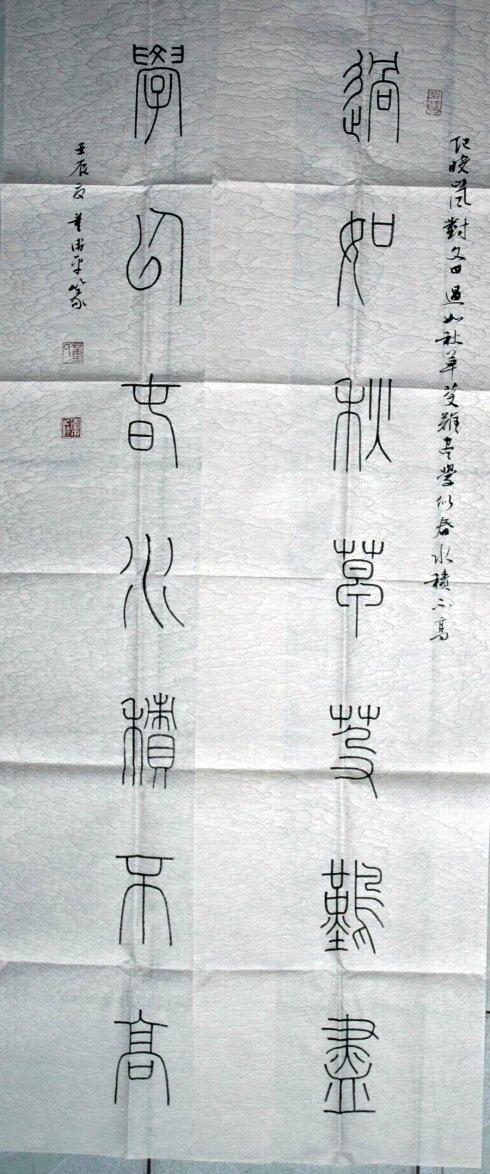 紀曉嵐對文曰過如秋草芟難盡學似春水積不高
過如秋草芟難盡
學似春水積不高
壬辰夏董平篆